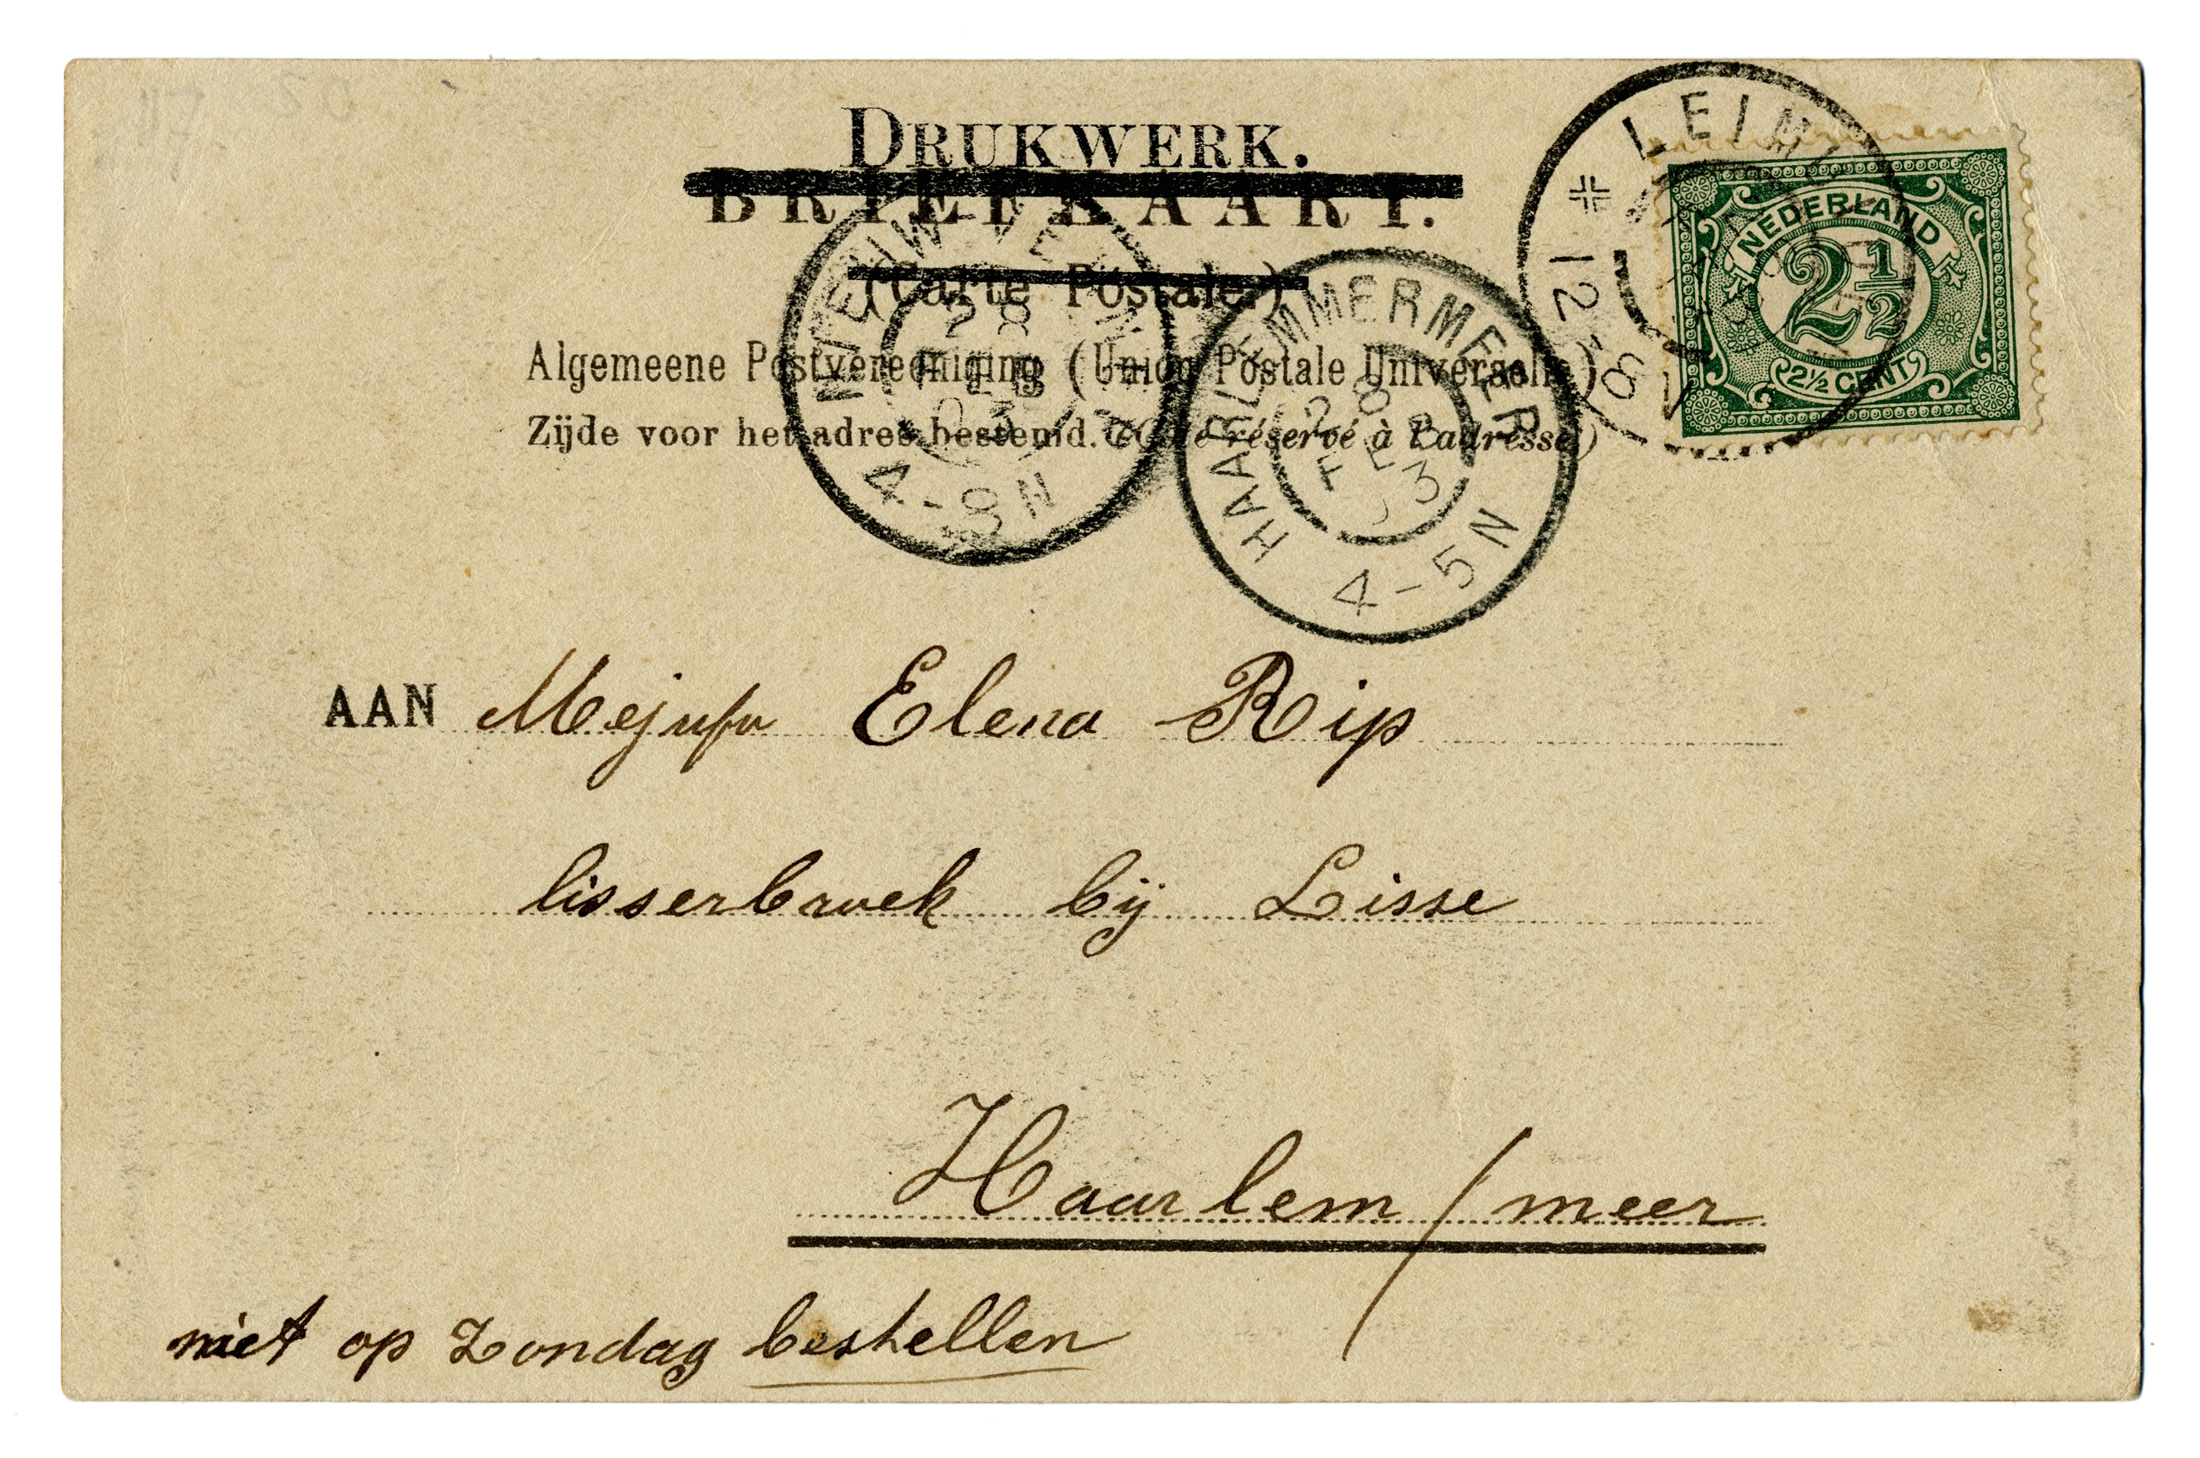 DRUKWERK.
BRIEFKAART.
(Carte Postale.)
Algemeene Postvereeniging (Union Postale Universelle)
Zijde voor het adres bestemd. (Côté réservé à l'adresse)
NEDERLAND
2½
2½ CENT
12-8
NIEUW-VENNEP
28
FEB
03
4-8N
HAARLEMMERMEER
28
FEB
03
4-5N
AAN Mejufr Elena Rip
lisserbroek bij Lisse
Haarlem/meer
niet op Zondag bestellen